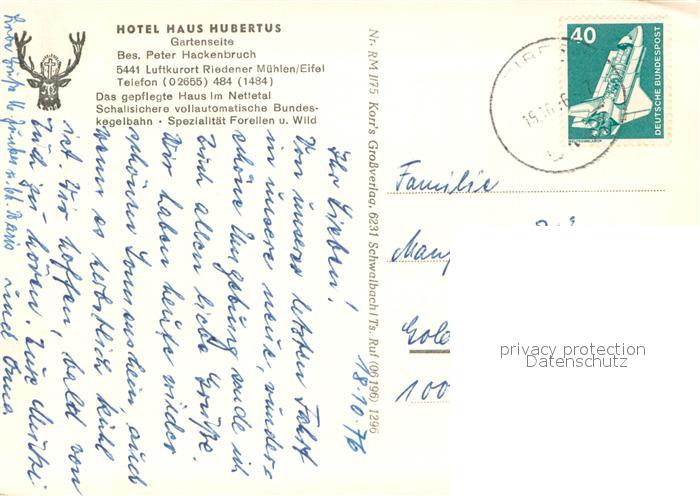 HOTEL HAUS HUBERTUS
Gartenseite
Bes. Peter Hackenbruch
5441 Luftkurort Riedener Mühlen/Eifel
Telefon (02655) 484 (1484)
Das gepflegte Haus im Nettetal
Schallsichere vollautomatische Bundes-
kegelbahn · Spezialität Forellen u. Wild
Nr. RM 1175 Korr's Großverlag, 6231 Schwalbach/Ts. Ruf (06196) 1296
40
DEUTSCHE BUNDESPOST
18.10.76
Ihr Lieben!
Von unserer letzten Fahrt
in unsere neue, wunder-
schöne Umgebung sende ich
Euch allen liebe Grüße.
Wir haben heute wieder
schönen Sonnenschein, auch
wenn es herbstlich kühl
ist. Wir hoffen, bald von
Euch zu hören. Eure Mutti
und Oma
Liebe Grüße
Familie
privacy protection
Datenschutz